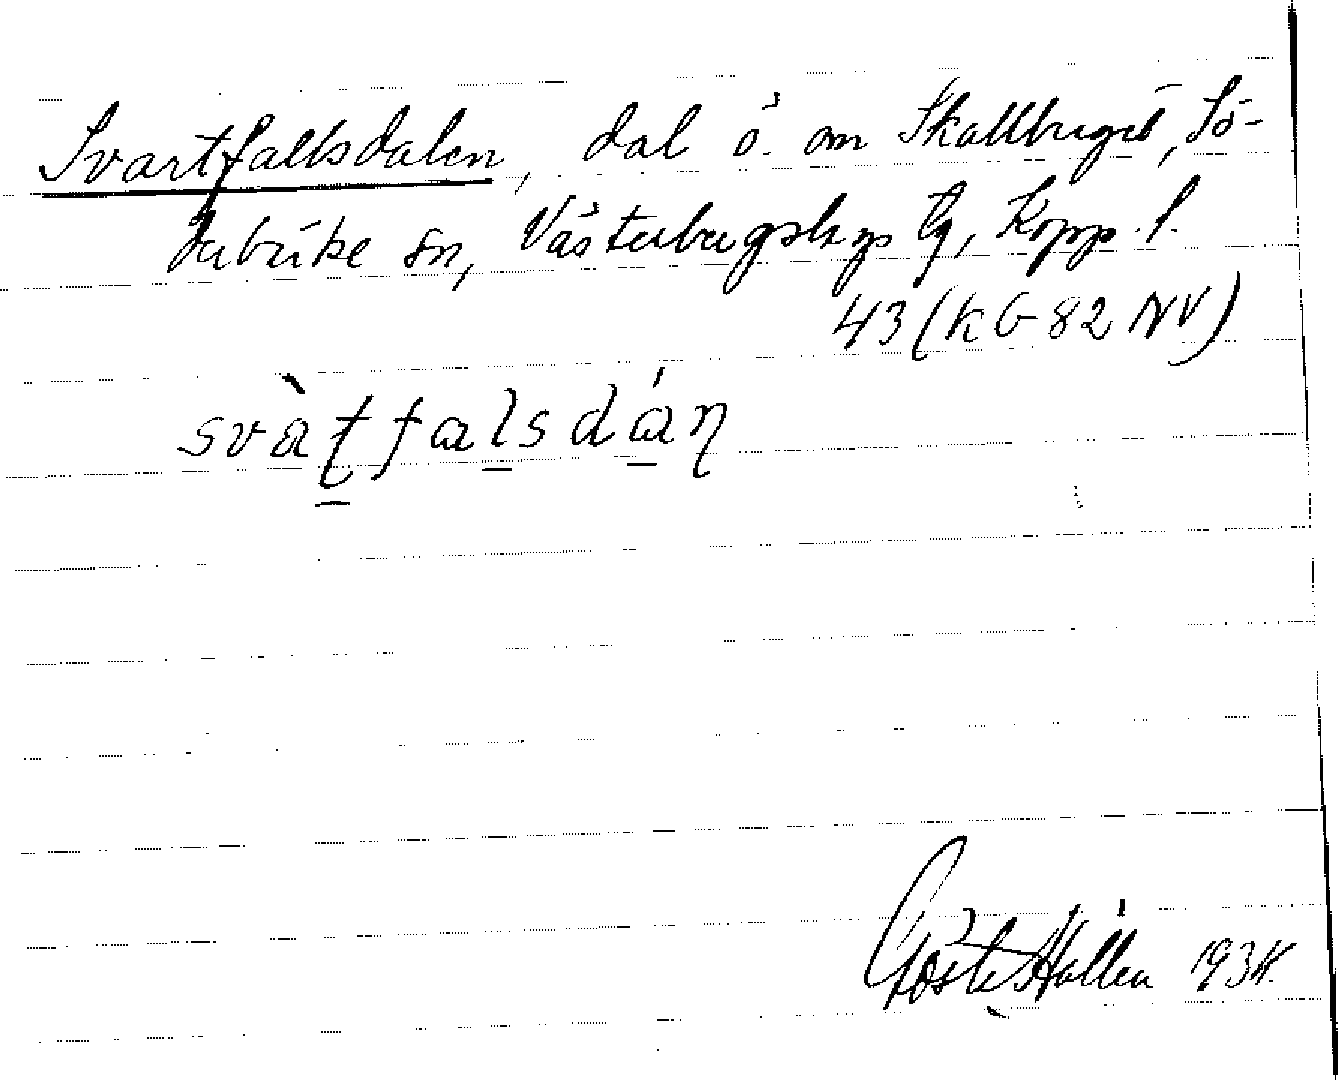 Svartfallsdalen, dal ö. om Skallberget, Sö-
derbärke sn, Västerbergslags tg, Kopp. l.
43 (KG 82 NV)
svàt̠fal̠sdán
Gösta Hallén 1934.